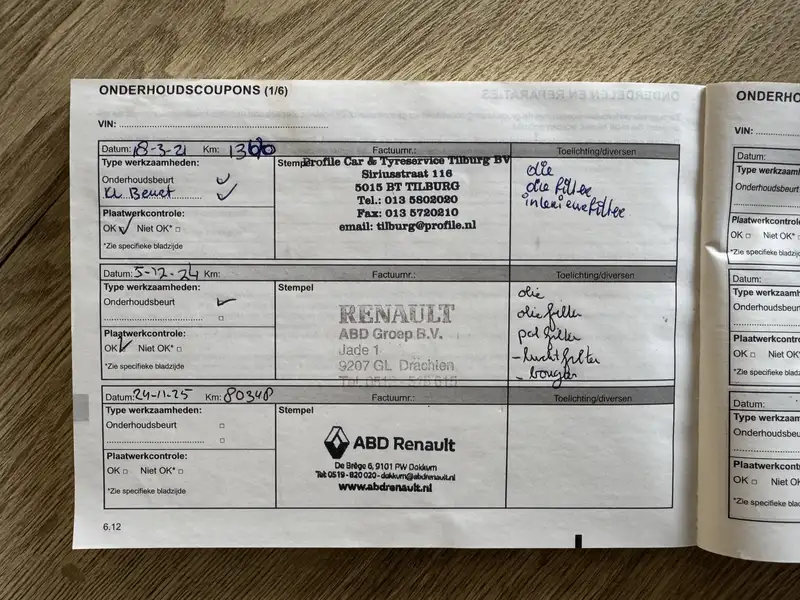 ONDERHOUDSCOUPONS (1/6)
VIN:
Datum: 18-3-21 Km: Factuurnr.: Toelichting/diversen
Type werkzaamheden:
Onderhoudsbeurt
Kl Beurt
Plaatwerkcontrole:
OK Niet OK*
*Zie specifieke bladzijde
Stempel
Profile Car & Tyreservice Tilburg BV
Siriusstraat 116
5015 BT TILBURG
Tel.: 013 5802020
Fax: 013 5720210
email: tilburg@profile.nl
olie
olie filter
interieurfilter
Datum: 5-12-24 Km: Factuurnr.: Toelichting/diversen
Type werkzaamheden:
Onderhoudsbeurt
Plaatwerkcontrole:
OK Niet OK*
*Zie specifieke bladzijde
Stempel
RENAULT
ABD Groep B.V.
Jade 1
9207 GL Drachten
olie
oliefilter
pol filter
- luchtfilter
- bougie
Datum: 24-11-25 Km: 80348 Factuurnr.: Toelichting/diversen
Type werkzaamheden:
Onderhoudsbeurt
Plaatwerkcontrole:
OK Niet OK*
*Zie specifieke bladzijde
Stempel
ABD Renault
De Brège 6, 9101 PW Dokkum
Tel: 0519 - 820 020 - dokkum@abdrenault.nl
www.abdrenault.nl
6.12
ONDERHO
VIN:
Datum:
Type werkzaam
Onderhoudsbeurt
Plaatwerkcontrole:
OK Niet OK*
*Zie specifieke bladz
Datum:
Type werkzaam
Onderhoudsbeur
Plaatwerkcontrol
OK Niet OK
*Zie specifieke bladz
Datum:
Type werkzaam
Onderhoudsbeu
Plaatwerkcontrol
OK Niet OK
*Zie specifieke bladz